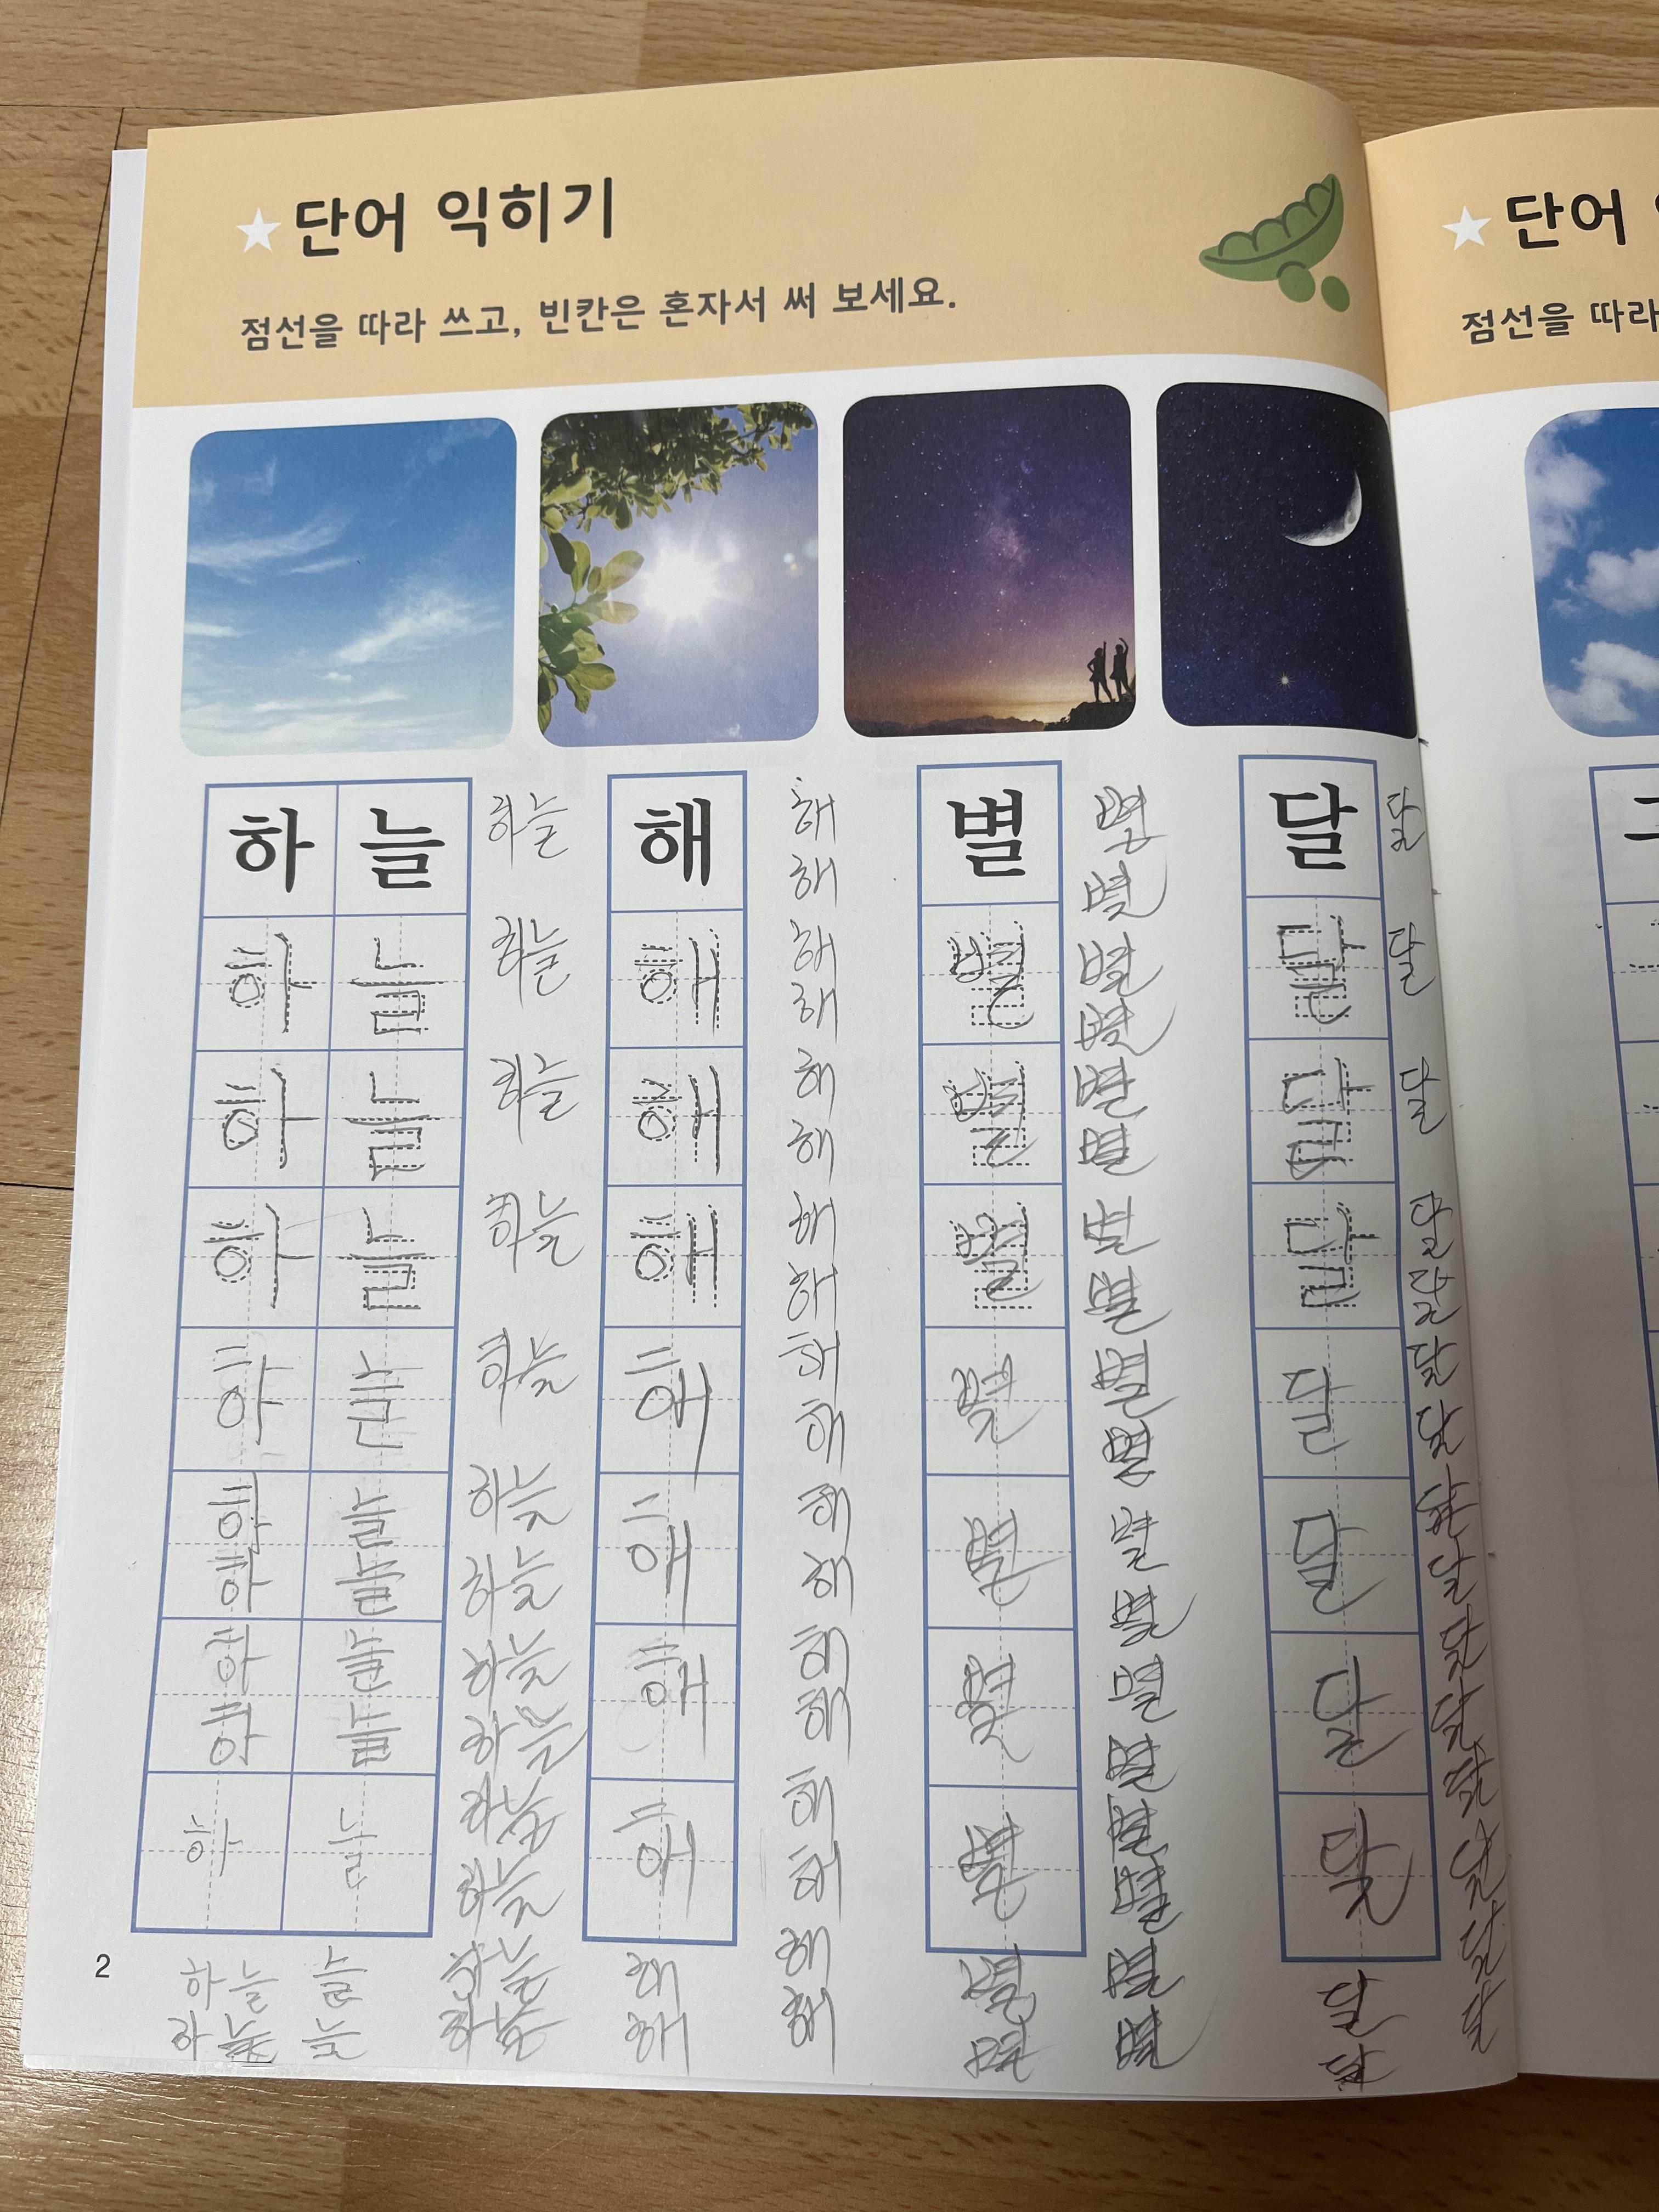 ★단어 익히기
점선을 따라 쓰고, 빈칸은 혼자서 써 보세요.
★단어
점선을 따라
하늘 하늘 해 해 별 별 달 달
해 별
하늘 하늘 해 해 별 별 달 달
해 별
하늘 하늘 해 해 별 별 달 달
해 별
하늘 하늘 해 해 별 별 달 달
해 별 달
하늘 하늘 해 해 별 별 달 달
해 별 달
하늘 하늘 해 해 별 별 달 달
하늘 하늘 해 별 달
하늘 하늘 해 해 별 별 달 달
하늘 하늘 해 별 달
하늘 하늘 해 해 별 별 달 달
하늘 해 별 달
2
하늘 늘 하늘 해 해 별 별 달 달
하늘 늘 하늘 해 해 별 별 달 달